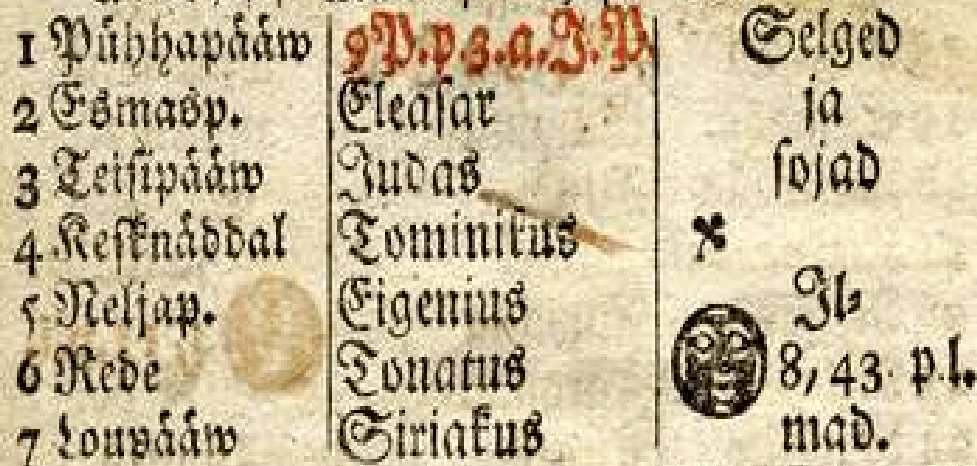 1 Pühhapääw 9 P. p 3. a. J. P.  Selged
2 Esmasp. Eleasar ja
3 Teisipääw Judas sojad
4 Kesknäddal Tominikus
5 Neljap. Eigenius Il-
6 Rede Tonatus 8, 43. p. l.
7 Loupääw Siriakus mad.